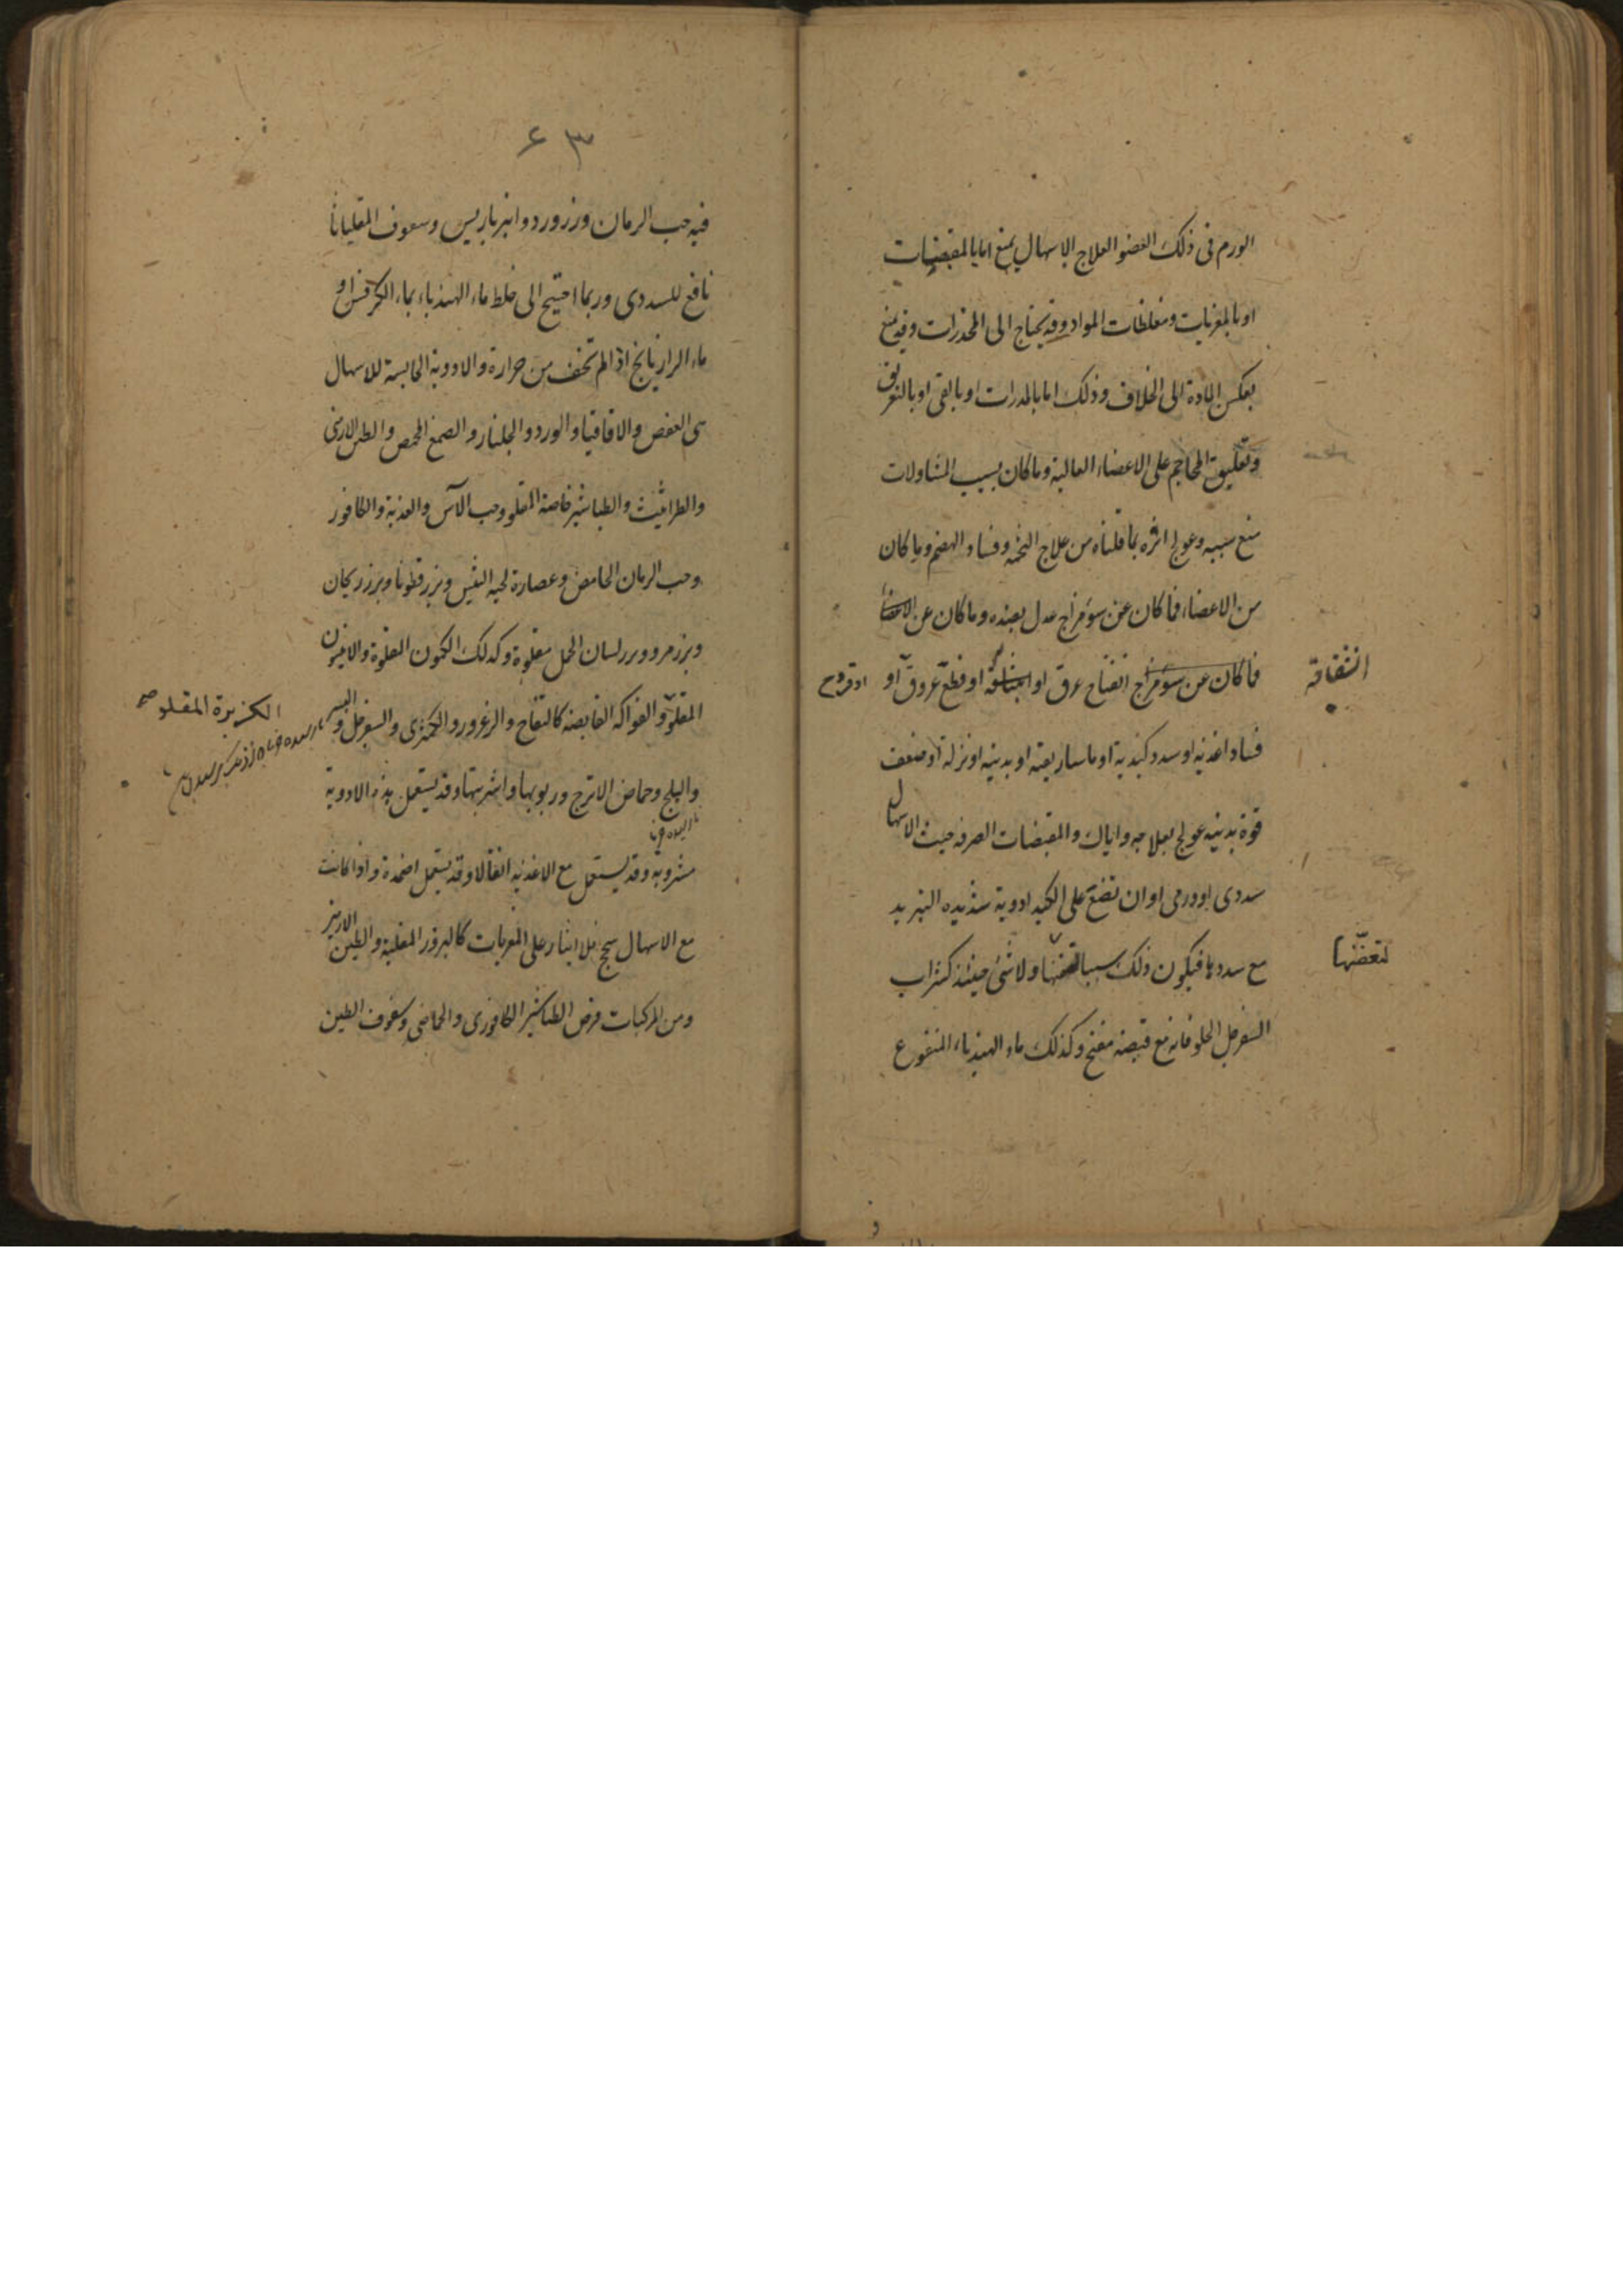 الورم فى ذلك العضو العلاج الاسهال يمنع اما بالمقبضات
او بالمغريات ومغلظات المواد وقد يحتاج الى المخدرات وقد يمنع
بعكس المادة الى الخلاف وذلك اما بالمدرات او بالقى او بالتعريق
وتعليق المحاجم على الاعضاء العالية وما كان بسبب المتناولات
منع سببه وعولج اثره بما قلناه من علاج التخمه وفساد الهضم وما كان
من الاعضاء فما كان عن سوء مزاج عدل بضده وما كان عن
فما كان عن سوء مزاج انفتاح عرق او او قطع عروق او او قروح
انشقاقه
فساد اغذيه او سدد كبدية او ماساريقيه او بدنيه او نزلة او ضعف
قوة بدنيه عولج بعلاجه واياك والمقبضات الصرفه حيث الاسهال
سددى او ورمى او ان تضع على الكبد ادوية شديده التبريد
مع سددها فيكون ذلك سببا لتعفنها ولا شئ حينئذ كشراب
لتعفنها
السفرجل الحلو فانه مع قبضه مفتح وكذلك ماء الهندباء المنقوع
۶۳
فيه حب الرمان وزرورد وانبرباريس وسفوف المقلياثا
نافع للسددى وربما احتيج الى خلط ماء الهندباء بماء الكرفس او
ماء الرازيانج اذا لم تخف من حرارة والادوية الحابسة للاسهال
هى العفص والاقاقيا والورد والجلنار والصمغ المحمص والطين الارمنى
والطراثيث والطباشير خاصة المقلو وحب الآس والعذبة والكافور
وحب الرمان الحامض وعصارة لحيه التيس وبزر قطونا وبرز ريحان
وبزر مرو وبزر لسان الحمل مقلوة وكذلك الكمون المقلوة والانيسون
المقلو والفواكه القابضه كالتفاح والزعرور والكمثرى والسفرجل و البسر
الكزبرة المقلو صح
والبلح وحماض الاترج وربوبها واشربتها وقد يستعمل هذه الادوية
مشروبة وقد يستعمل مع الاغذيه انقالا وقد يستعمل اضمدة واذا كانت
مع الاسهال سحج فلا ايثار على المغريات كالبزور المقلية والطين الارمنى
ومن المركبات قرص الطباشير الكافورى والحماضى وسفوف الطين